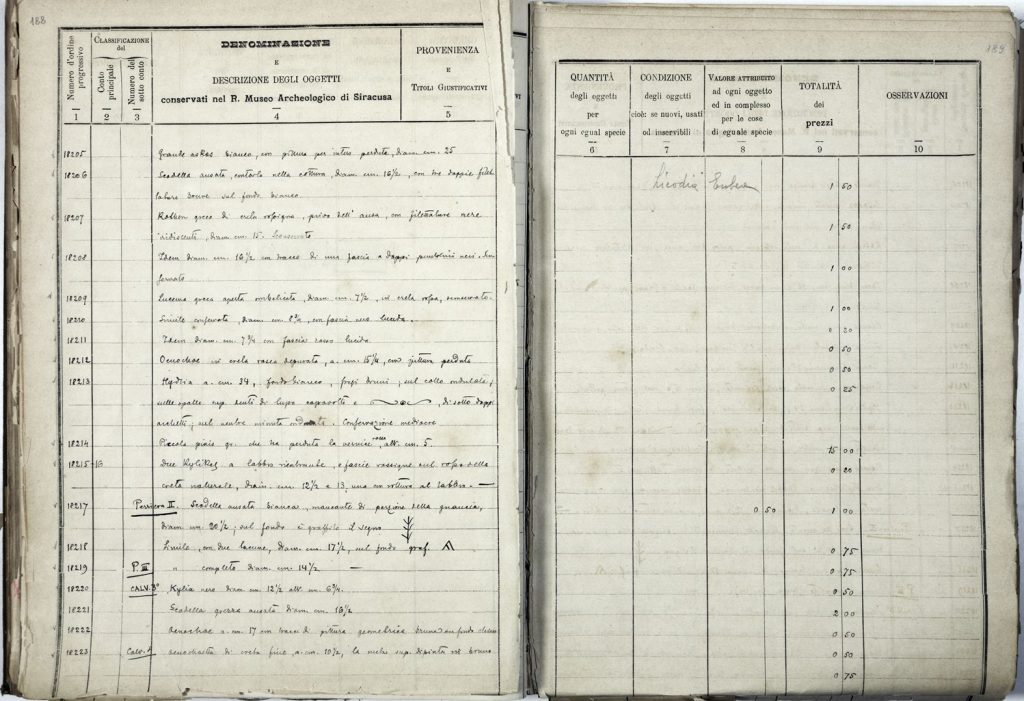 188
Numero d'ordine progressivo
CLASSIFICAZIONE del
Conto principale
Numero del sotto conto
DENOMINAZIONE
E
DESCRIZIONE DEGLI OGGETTI
conservati nel R. Museo Archeologico di Siracusa
PROVENIENZA
E
TITOLI GIUSTIFICATIVI
1 2 3 4 5
18205 Grande askos bianco, con pittura per intero perduta, diam. cm. 25
18206 Scodella ansata, contorta nella cottura, diam. cm. 16½, con tre doppie filet-
tature brune sul fondo bianco
18207 Kothon greco di creta rossigna, privo dell'ansa, con filettature nere
iridiscenti, diam. cm. 15.
18208 Idem diam. cm. 16½ con tracce di una fascia a doppi puntolini neri.
18209 Lucerna greca aperta ombelicata, diam. cm. 7½, in creta rossa,
18210 Simile conservata, diam. cm. 8¾, con fascia nera lucida.
18211 Idem diam. cm. 7¾ con fascia rosso lucida
18212 Oenochoe in creta rossa depurata, a. cm. 15¼, con pittura perduta
18213 Hydria a. cm. 34, fondo bianco, fregi bruni; sul collo ondulate;
sulle spalle rep. denti di lupo capovolti e , di sotto doppi
archetti; sul ventre minuta ondulate. Conservazione mediocre
18214 Piccola pixis gr. che ha perduta la vernice rossa, alt. cm. 5.
18215-16 Due Kylikes a labbro rientrante, e fascie rossigne sul rosso della
creta naturale, diam. cm. 12½ e 13, una con rottura al labbro. —
18217 Perriera II. Scodella ansata bianca, mancante di porzione della guancia,
diam. cm. 20½; sul fondo è graffito il segno
18218 Simile, con due lacune, diam. cm. 17½, sul fondo graf.
18219 P. III " completo diam. cm. 14½ —
18220 CALV. 3° Kylix nero diam. cm. 12½ alt. cm. 6¾.
18221 Scodella grezza ansata diam. cm. 16½
18222 Oenochoe a. cm. 17 con tracce di pittura geometrica bruna su fondo
18223 Calv. di creta fine, a. cm. 10½, la metà sup. dipinta in bruno
189
QUANTITÀ
degli oggetti
per
ogni egual specie
CONDIZIONE
degli oggetti
cioè: se nuovi, usati
od inservibili
VALORE ATTRIBUITO
ad ogni oggetto
ed in complesso
per le cose
di eguale specie
TOTALITÀ
dei
prezzi
OSSERVAZIONI
6 7 8 9 10
Licodia Eubea
1 50
1 50
1 00
1 00
0 20
0 50
0 50
0 25
15 00
0 20
0 50 1 00
0 75
0 75
0 50
2 00
0 50
0 50
0 75